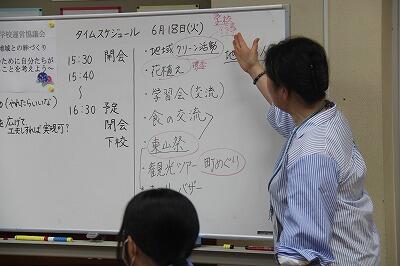 学校運営協議会
地域との絆づくり
ために自分たちが
ことを考えよう〜
(やれたらいいな)
を広げて
工夫しれば実現可?
タイムスケジュール 6月18日(火)
15:30 開会
15:40
〜
16:30 予定
閉会
下校
学校
・地域クリーン活動
・花植え
・学習会(交流)
・食の交流
・東山祭
・観光ツアー 町めぐり
バザー